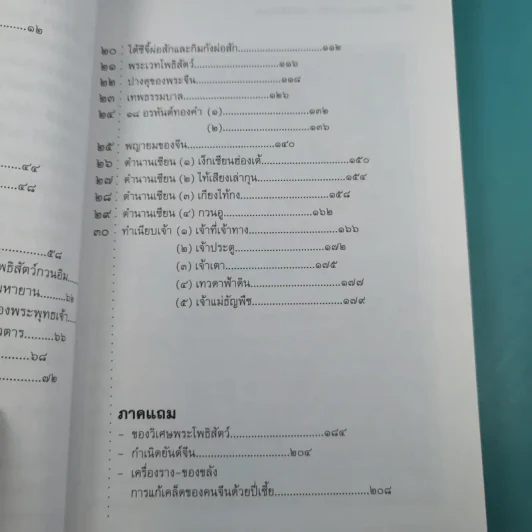 ๑๒
๔๔
๔๘
๕๘
พธิสัตว์กวนอิม
มหายาน.........๖๒
องพระพุทธเจ้า
วตาร..........๖๖
๖๘
๗๒
๒๐ : ไต้ซีจี้ผ่อสักและกิมกังผ่อสัก............................๑๑๒
๒๑ : พระเวทโพธิสัตว์............................๑๑๖
๒๒ : ปางดุของพระจีน............................๑๑๘
๒๓ : เทพธรรมบาล............................๑๒๖
๒๔ : ๑๘ อรหันต์ทองคำ (๑)............................๑๓๒
(๒)............................๑๓๖
๒๕ : พญายมของจีน............................๑๔๐
๒๖ : ตำนานเซียน (๑) เง็กเซียนฮ่องเต้............................๑๕๐
๒๗ : ตำนานเซียน (๒) ไท้เสียงเล่ากุน............................๑๕๔
๒๘ : ตำนานเซียน (๓) เกียงไท้กง............................๑๕๘
๒๙ : ตำนานเซียน (๔) กวนอู............................๑๖๒
๓๐ : ทำเนียบเจ้า (๑) เจ้าที่เจ้าทาง............................๑๖๖
(๒) เจ้าประตู............................๑๗๒
(๓) เจ้าเตา............................๑๗๕
(๔) เทวดาฟ้าดิน............................๑๗๗
(๕) เจ้าแม่ธัญพืช............................๑๗๙
ภาคแถม
- ของวิเศษพระโพธิสัตว์............................๑๘๔
- กำเนิดยันต์จีน............................๒๐๔
- เครื่องราง-ของขลัง
การแก้เคล็ดของคนจีนด้วยปี่เซี้ย............................๒๐๘